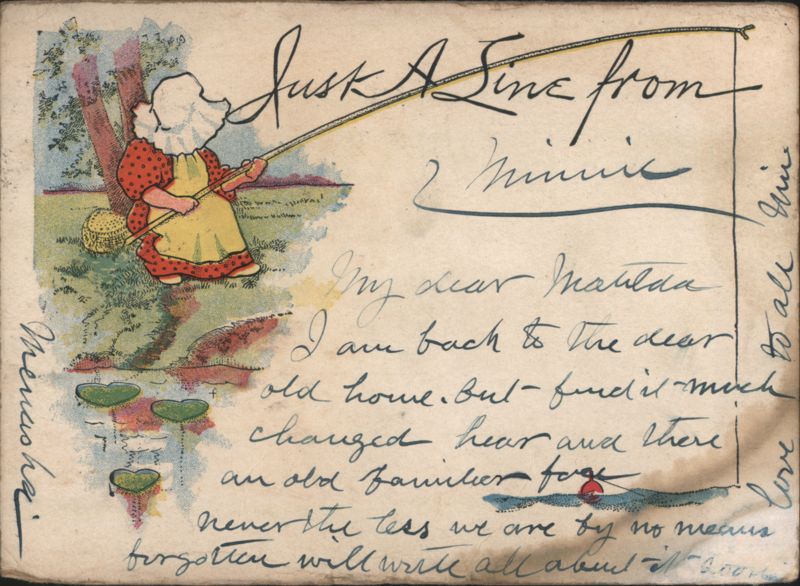 Just A Line from
Minnie
My dear Matilda
I am back to the dear
old home. but - find it - much
changed hear and there
an old familier face
never the less we are by no means
forgotten will write all about - it - soon
love to all Min
Menasha